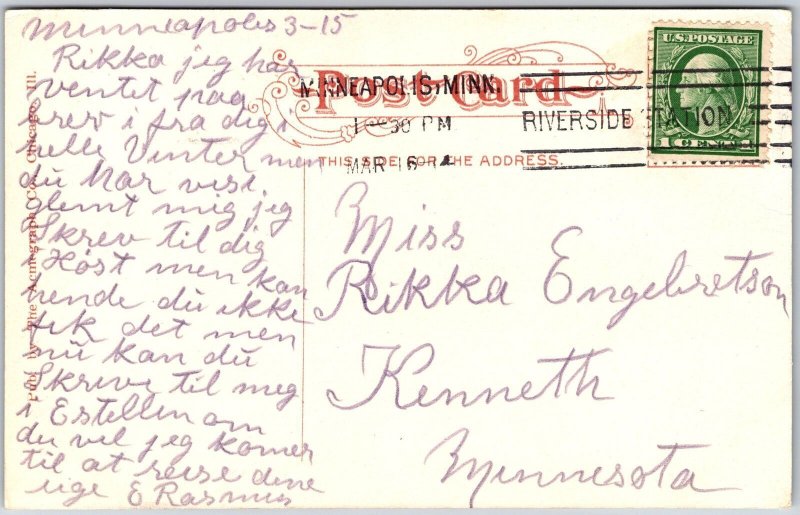 Minneapolis 3-15
Rikka jeg har
ventet paa
brev i fra dig i
helle Vinter men
du har vist
glemt mig jeg
Skrev til dig
i Höst men kan
hende du ikke
fik det men
nu kan du
Skrive til meg
i Estellin om
du vel jeg komer
til at reise dene
uge E Rasmus
Pub. by The Acmegraph Co., Chicago, Ill.
Post Card
THIS SIDE FOR THE ADDRESS.
MINNEAPOLIS, MINN.
1-30 PM
MAR 16
RIVERSIDE STATION
U.S. POSTAGE
1 CENT 1
Miss
Rikka Engebretson
Kenneth
Minnesota